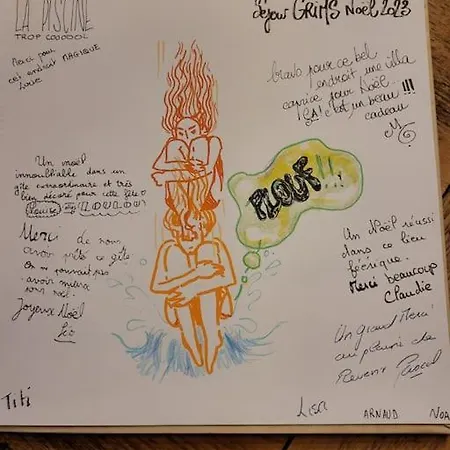 LA PISCINE
TROP COOOOOL
Merci pour
cet endroit MAGIQUE
Séjour GRIMS Noël 2023
bravo pour ce bel
endroit une villa
caprice pour Noël.
ÇA! c'est un beau !!!
cadeau
Un noël
innoubliable dans un
gîte extraordinaire et très
bien décoré pour cette fête
Louise LOULOU
PLOUF!!
Merci de nous
avoir prêté ce gîte
On ne pouvait pas
avoir mieux
pour noël.
Joyeux Noël
Léo
Un Noël réussi
dans ce lieu
féerique.
Merci beaucoup
Claudie
Un Grand Merci
au plaisir de
Revenir Pascal
Titi
Lisa
ARNAUD
NOA